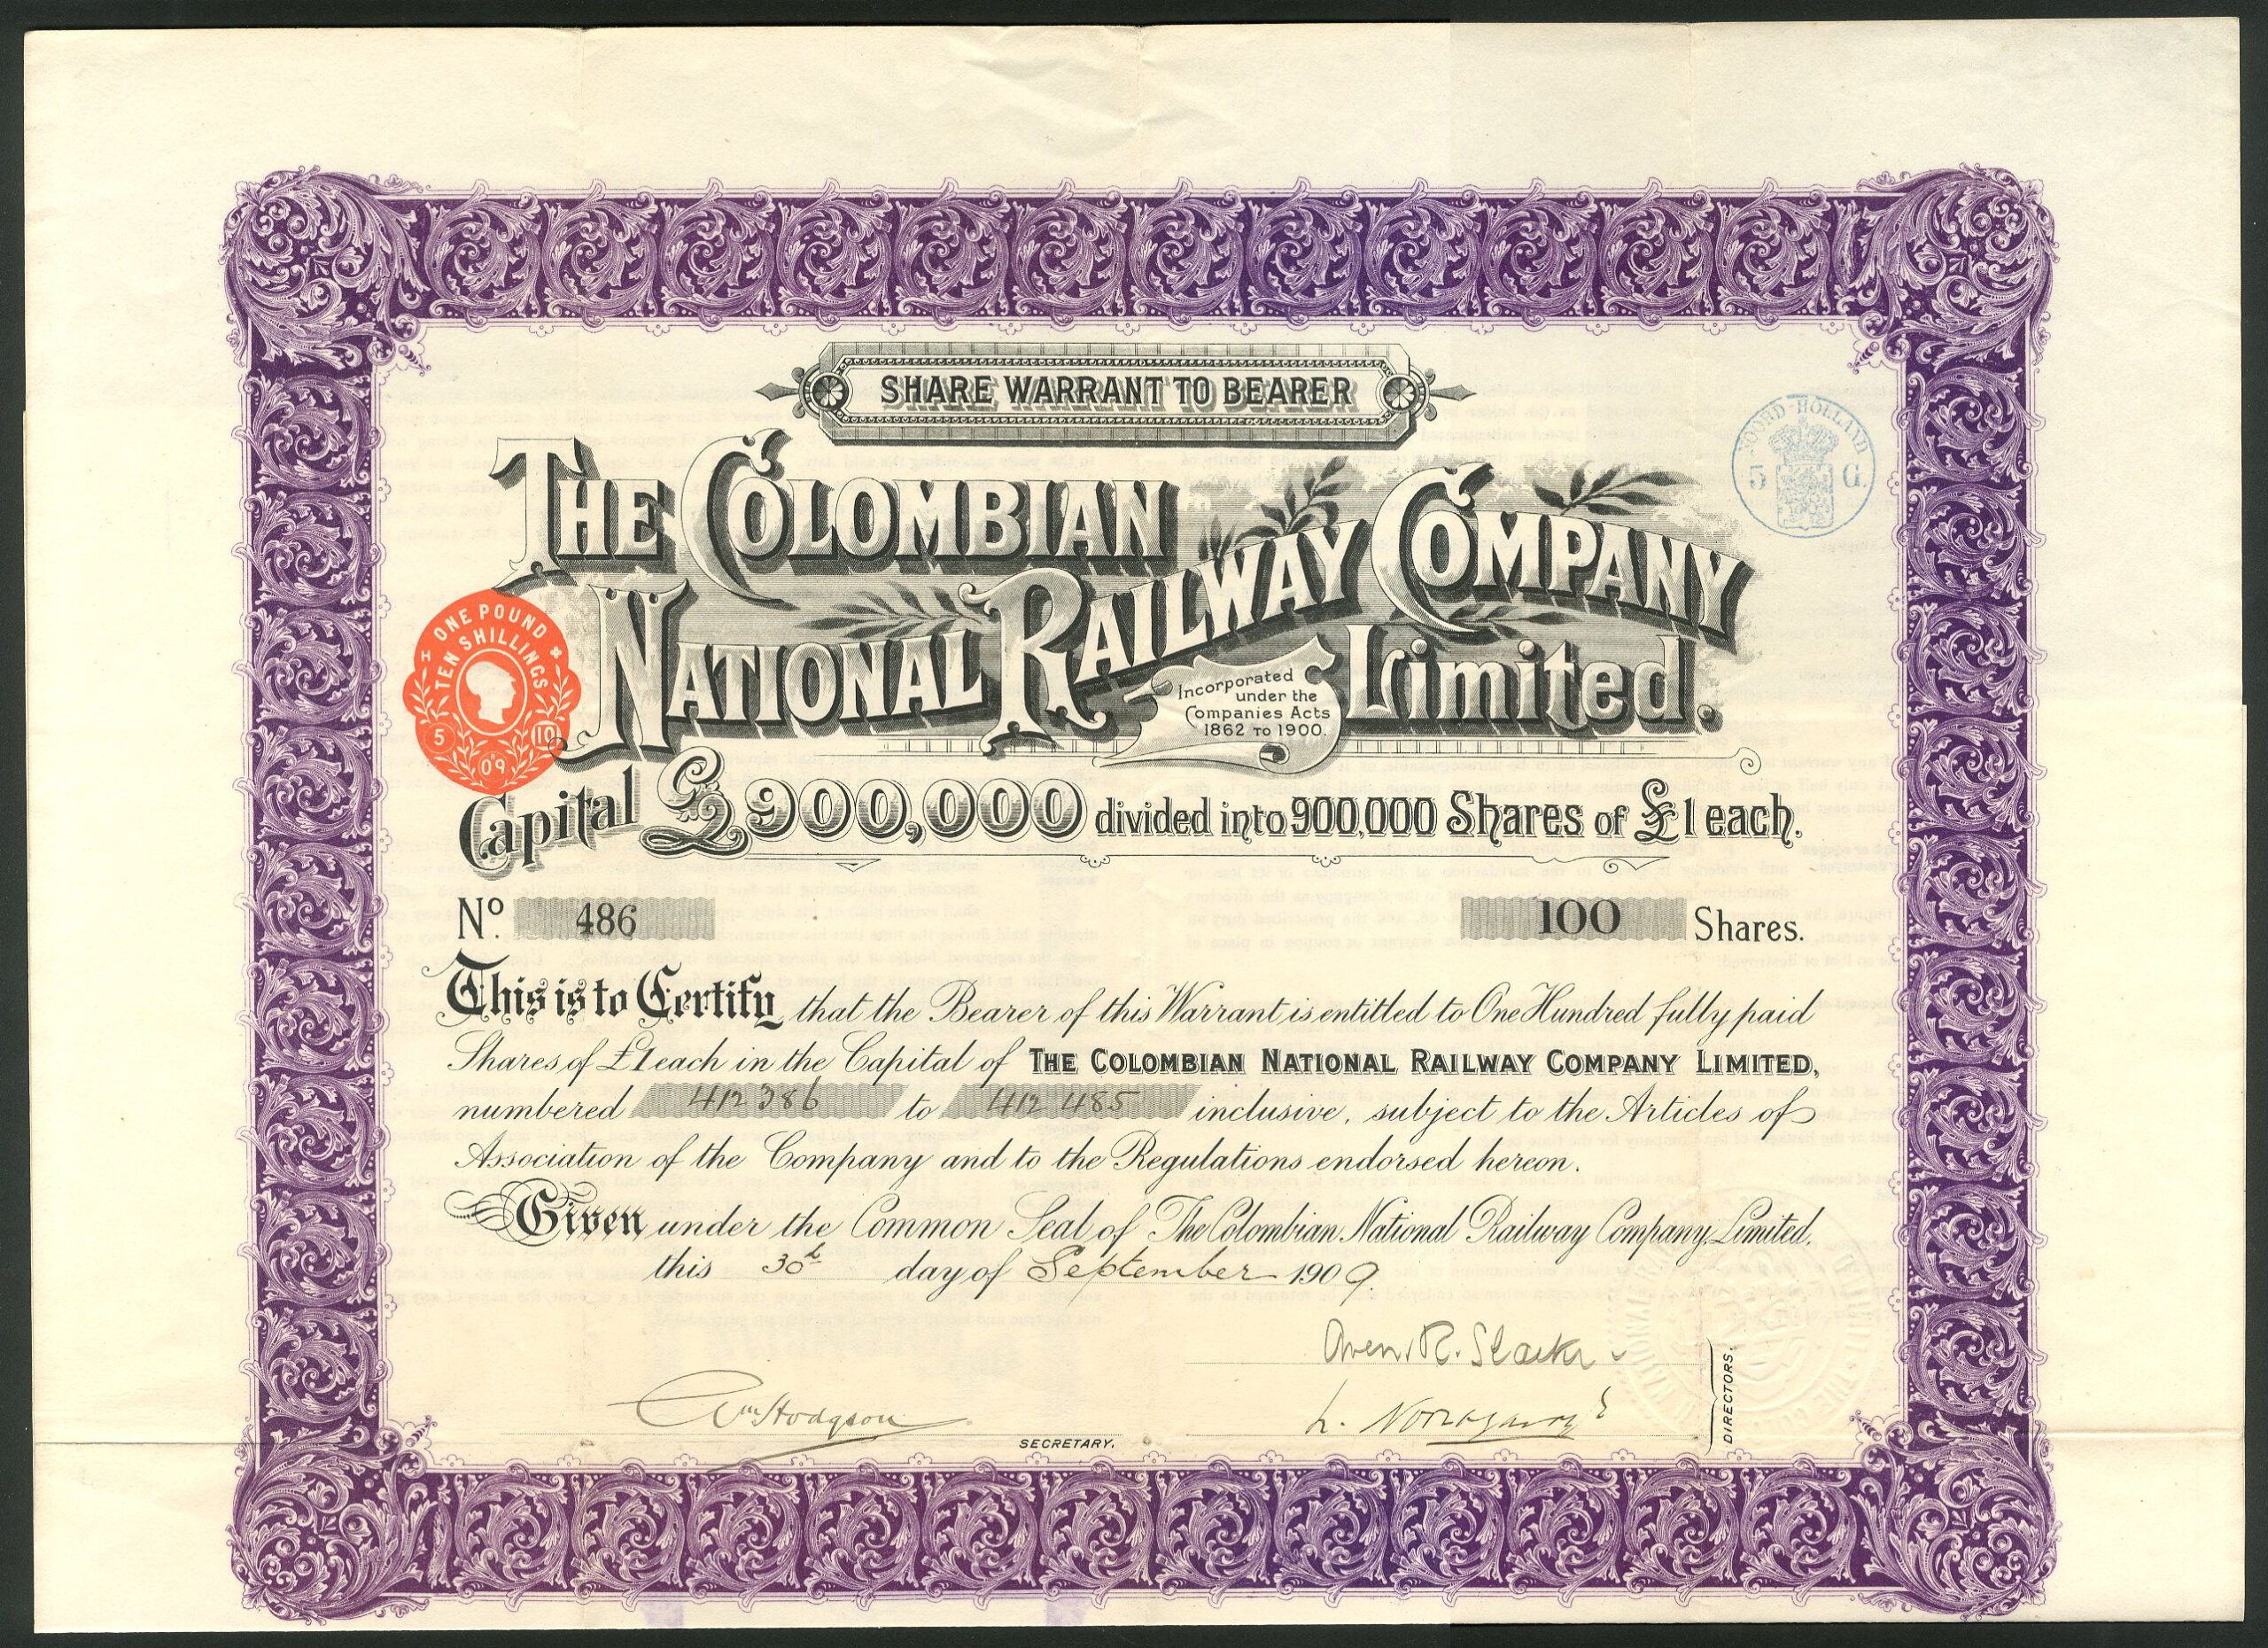 SHARE WARRANT TO BEARER
THE COLOMBIAN
NATIONAL RAILWAY COMPANY
Limited.
Incorporated
under the
Companies Acts
1862 TO 1900.
NOORD-HOLLAND
5 G.
ONE POUND
TEN SHILLINGS
5 10
09
Capital £900,000 divided into 900,000 Shares of £1 each.
No. 486 100 Shares.
This is to Certify that the Bearer of this Warrant is entitled to One Hundred fully paid
Shares of £1 each in the Capital of THE COLOMBIAN NATIONAL RAILWAY COMPANY LIMITED,
numbered 412386 to 412485 inclusive, subject to the Articles of
Association of the Company and to the Regulations endorsed hereon.
Given under the Common Seal of The Colombian National Railway Company, Limited,
this 30th day of September 1909.
Owen R.
Wm Hodgson
SECRETARY.
DIRECTORS.